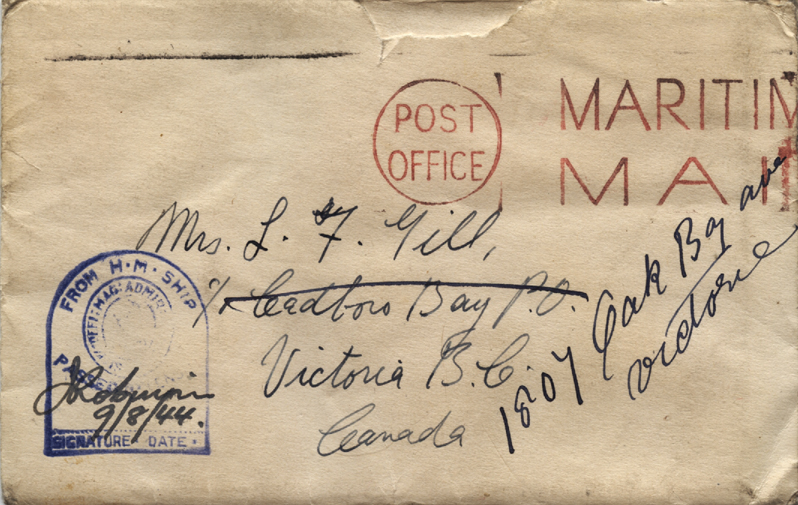 POST
OFFICE
MARITIM
MAI
Mrs. L. F. Gill,
c/o Cadboro Bay P.O.
Victoria B.C.
Canada
1807 Oak Bay ave
Victoria
FROM H·M·SHIP
9/8/44.
SIGNATURE DATE